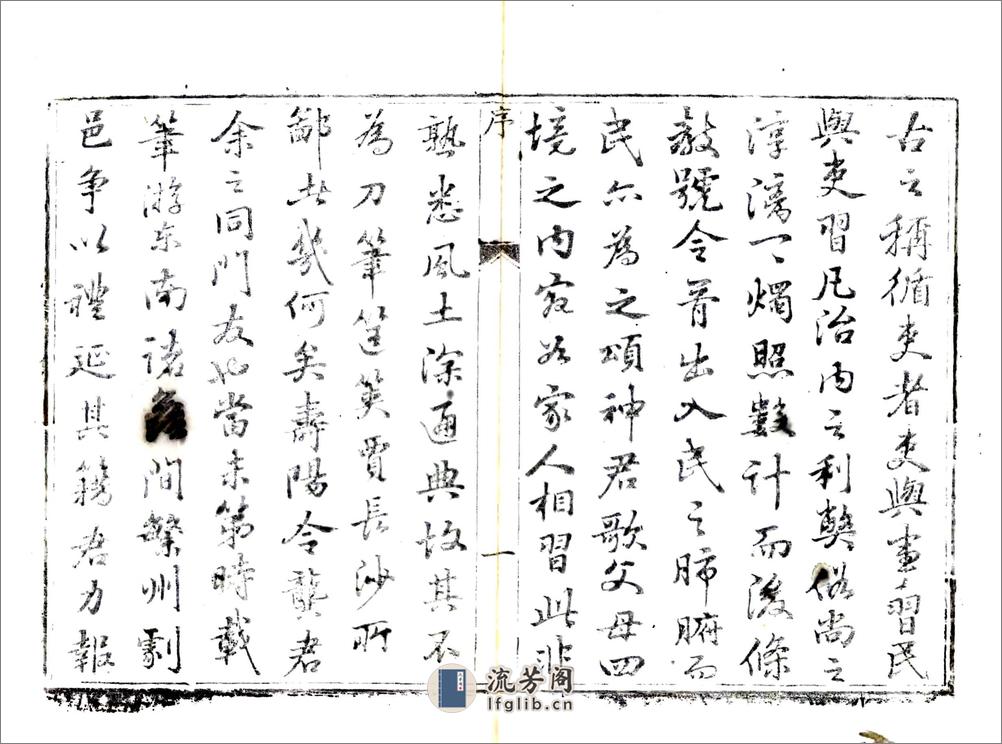 古之稱循吏者吏與畫習民
與吏習凡治内之利弊俗尚之
淳漓一一燭照數計而後條
教號令胥出入民之肺腑而
民亦為之頌神君歌父母四
境之内宛如家人相習此非
序
一
熟悉風土深通典故其不
為刀筆筐篋賈長沙所
鄙者幾何矣壽陽令龔君
余之同門友也當未第時載
筆游東南諸間繁州劇
邑爭以禮延其籌君力報
流芳阁
lfglib.cn